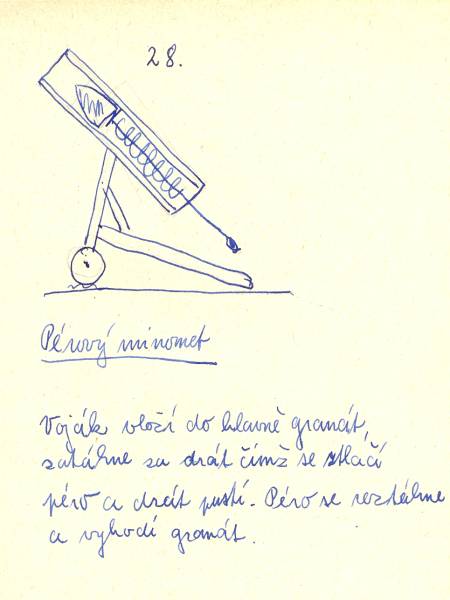 28.
Pérový minomet
Voják vloží do hlavně granát,
zatáhne za drát čímž se stlačí
péro a drát pustí. Péro se roztáhne
a vyhodí granát.